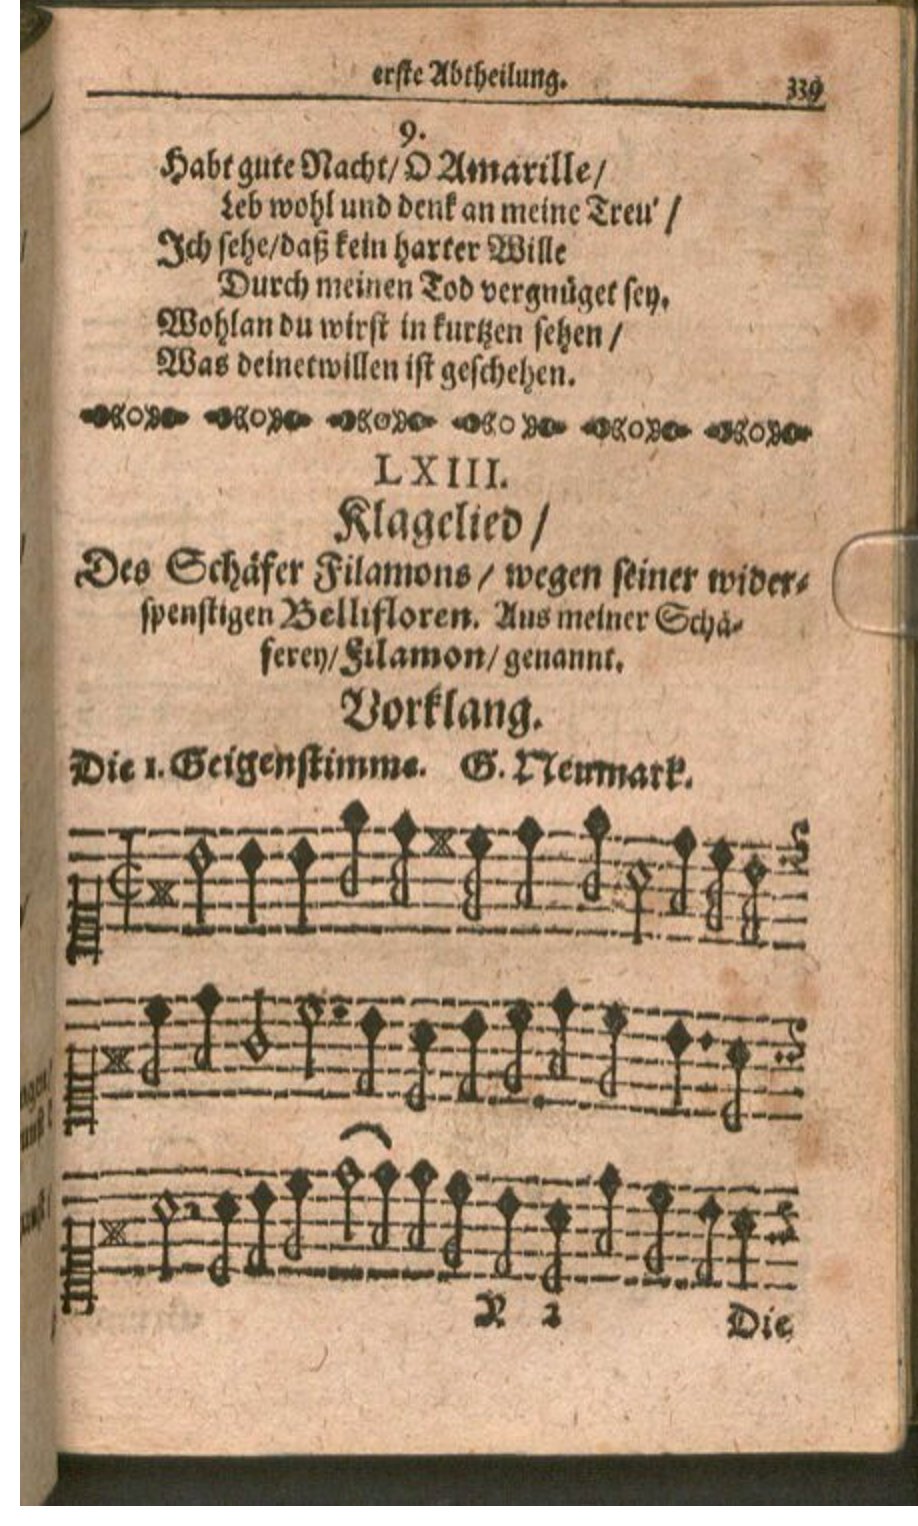 erste Abtheilung. 339
9.
Habt gute Nacht/ O Amarille/
Leb wohl und denk an meine Treu' /
Ich sehe/daß kein harter Wille
Durch meinen Tod vergnüget sey.
Wohlan du wirst in kurtzen sehen /
Was deinetwillen ist geschehen.
LXIII.
Klagelied /
Des Schäfer Filamons / wegen seiner wider-
spenstigen Bellifloren. Aus meiner Schä-
ferey/ Filamon/ genannt.
Vorklang.
Die 1. Geigenstimme. G. Neumark.
Die